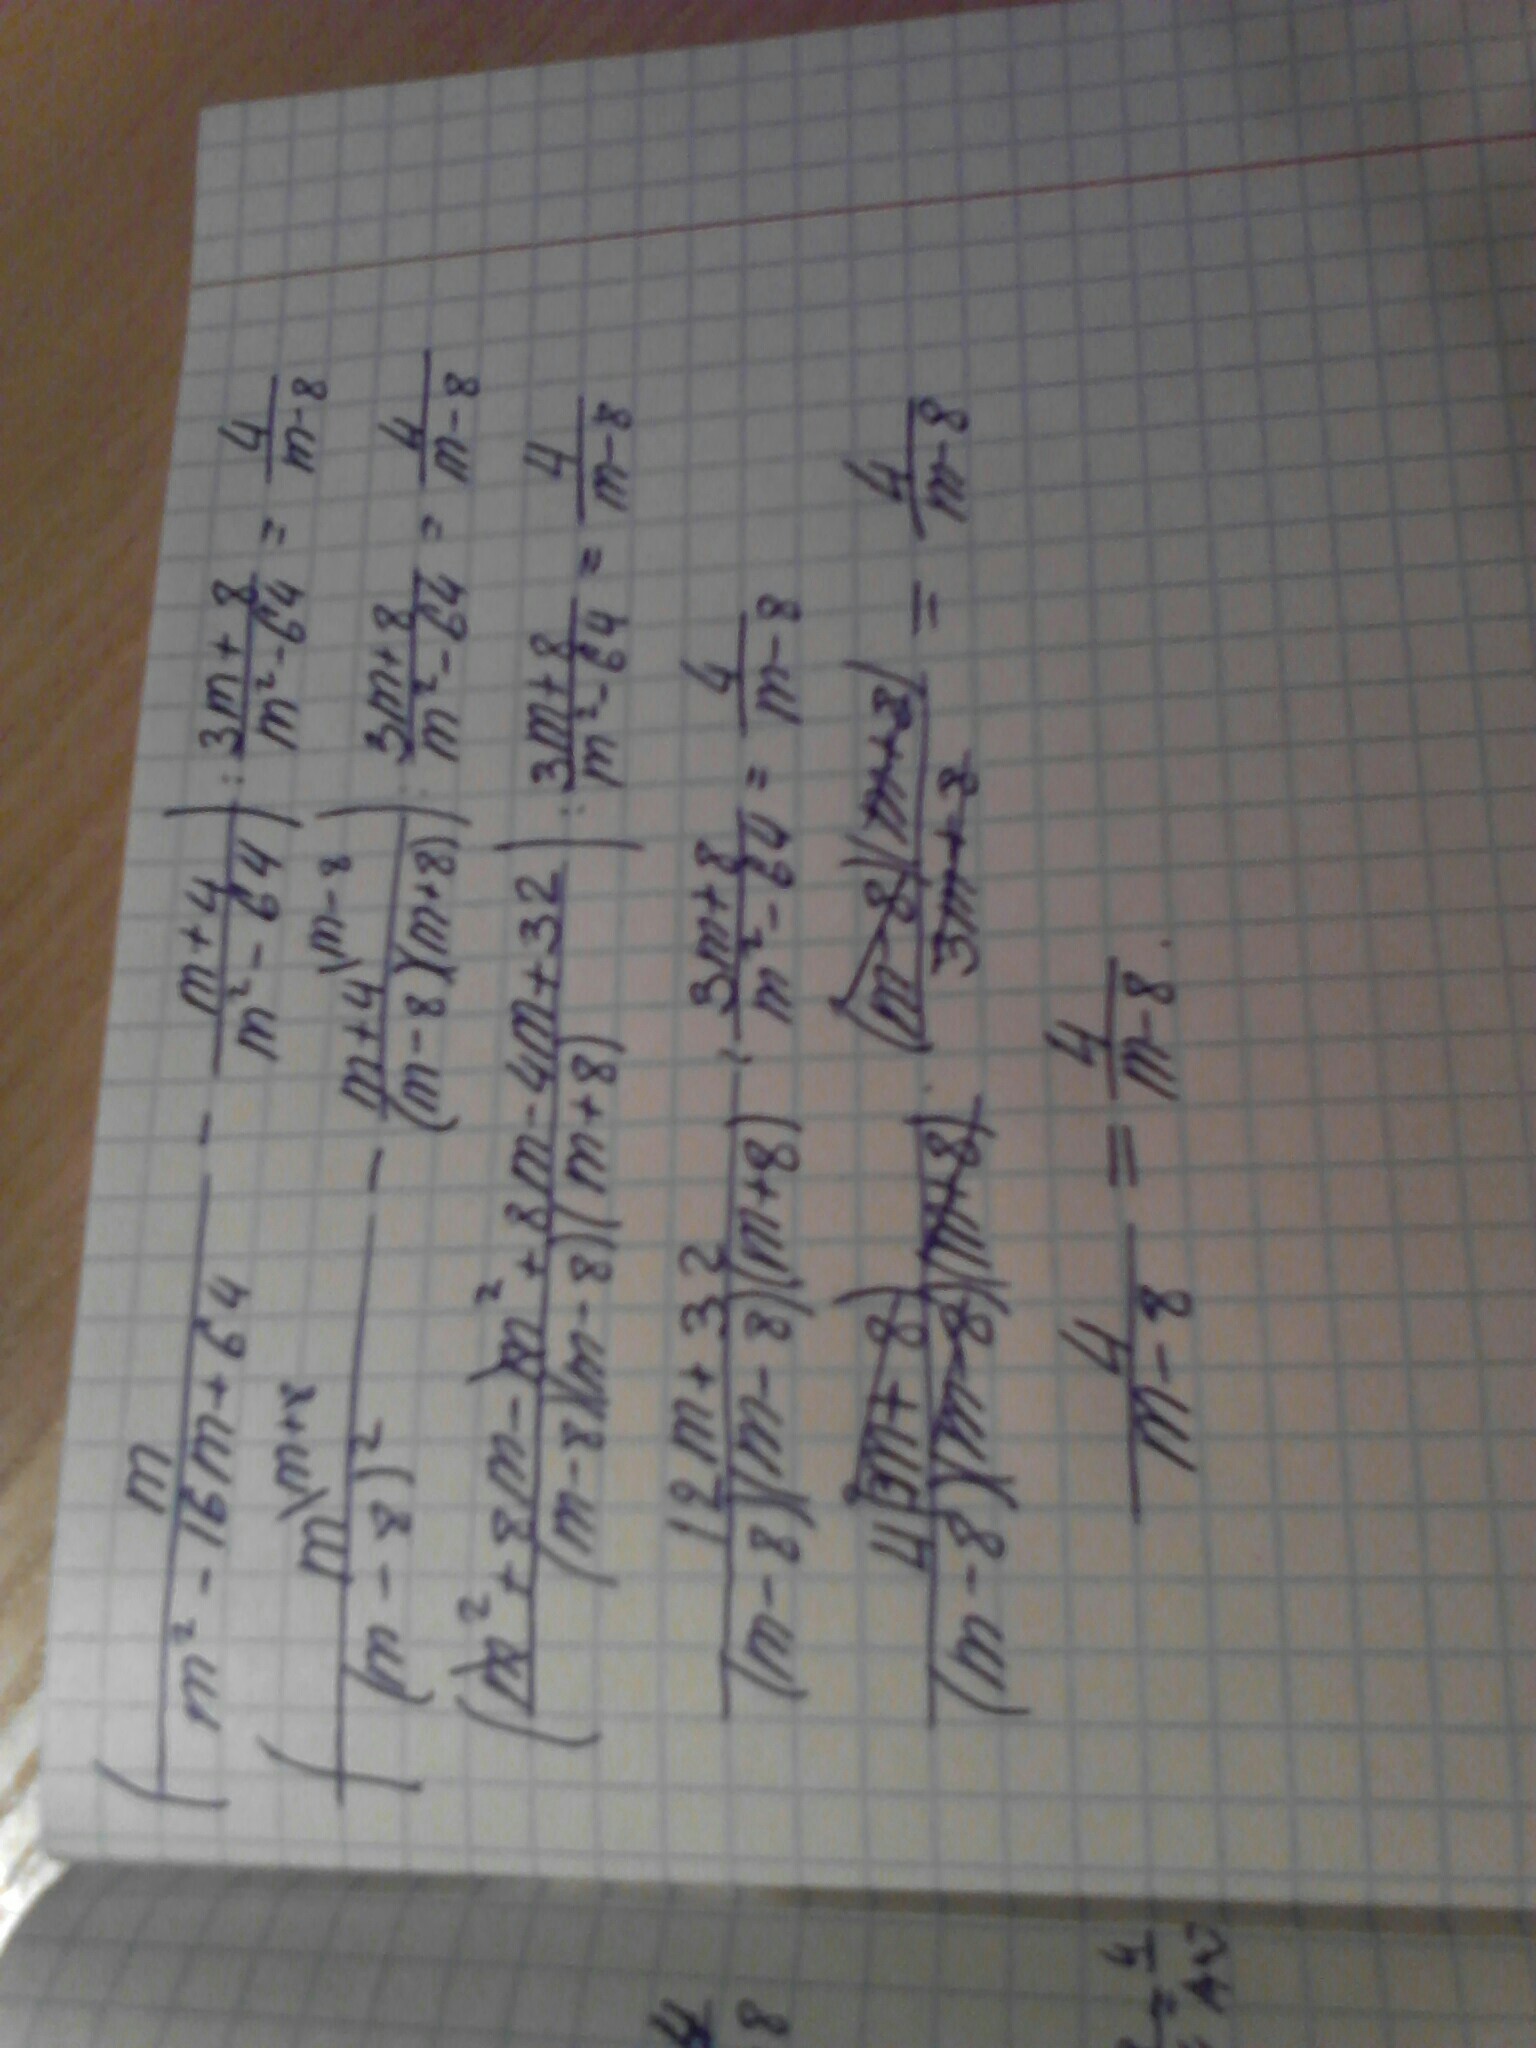 (m/(m² - 16m + 64) - (m + 4)/(m² - 64)) : (3m + 8)/(m² - 64) = 4/(m - 8)
(m\m+8/(m - 8)² - m + 4\m-8/((m - 8)(m + 8))) : (3m + 8)/(m² - 64) = 4/(m - 8)
((m² + 8m - m² + 8m - 4m + 32)/((m - 8)(m - 8)(m + 8))) : (3m + 8)/(m² - 64) = 4/(m - 8)
(12m + 32)/((m - 8)(m - 8)(m + 8)) : (3m + 8)/(m² - 64) = 4/(m - 8)
4(3m + 8)/((m - 8)(m - 8)(m + 8)) · (m - 8)(m + 8)/(3m + 8) = 4/(m - 8)
4/(m - 8) = 4/(m - 8).